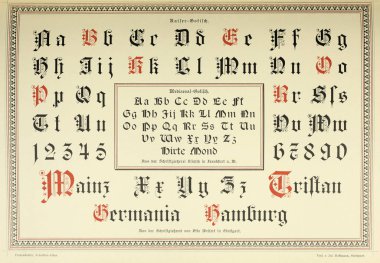 Kaiser-Gotisch.
Aa Bb Cc Dd Ee Ff Gg
Hh Ii j Kk Ll Mm Nn Oo
Pp Qq
Rr Sſs
Tt Uu
Vv Ww
12345
67890
Mediaeval-Gotisch.
Aa Bb Cc Dd Ee Ff
Gg Hh Iij Kk Ll Mm Nn
Oo Pp Qq Rr Sſs Tt Uu
Vv Ww Xx Yy Zz
Hirte Mond
Aus der Schriftgießerei Flinsch in Frankfurt a. M.
Mainz Xx Yy Zz Tristan
Germania Hamburg
Aus der Schriftgießerei von Otto Weisert in Stuttgart.
Verl. v. Jul. Hoffmann, Stuttgart.